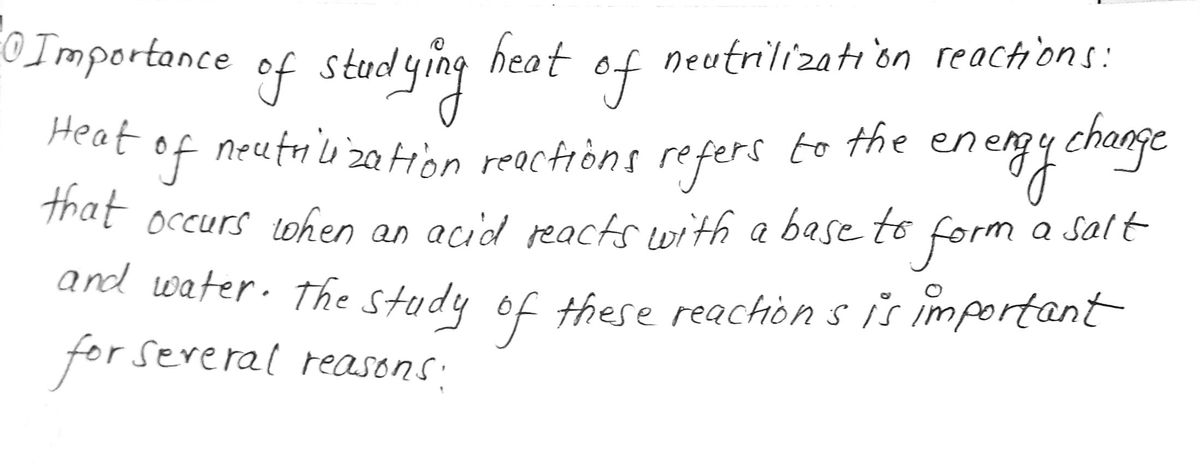 ① Importance of studying heat of neutrilization reactions:
Heat of neutrilization reactions refers to the energy change
that occurs when an acid reacts with a base to form a salt
and water. The study of these reactions is important
for several reasons: